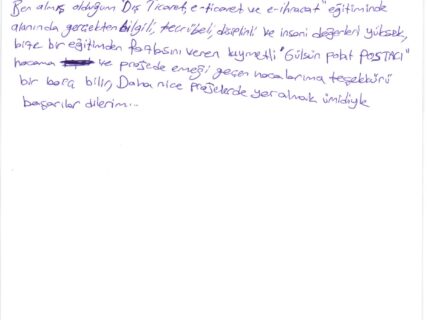 Ben almış olduğum "Dış Ticaret, e-ticaret ve e-ihracat" eğitiminde
alanında gerçekten bilgili, tecrübeli, disiplinli ve insani değerleri yüksek,
bize bir eğitimden fazlasını veren kıymetli "Gülsün Polat POSTACI"
hocama ve projede emeği geçen hocalarıma teşekkürü
bir borç bilir, Daha nice projelerde yer almak ümidiyle
başarılar dilerim...